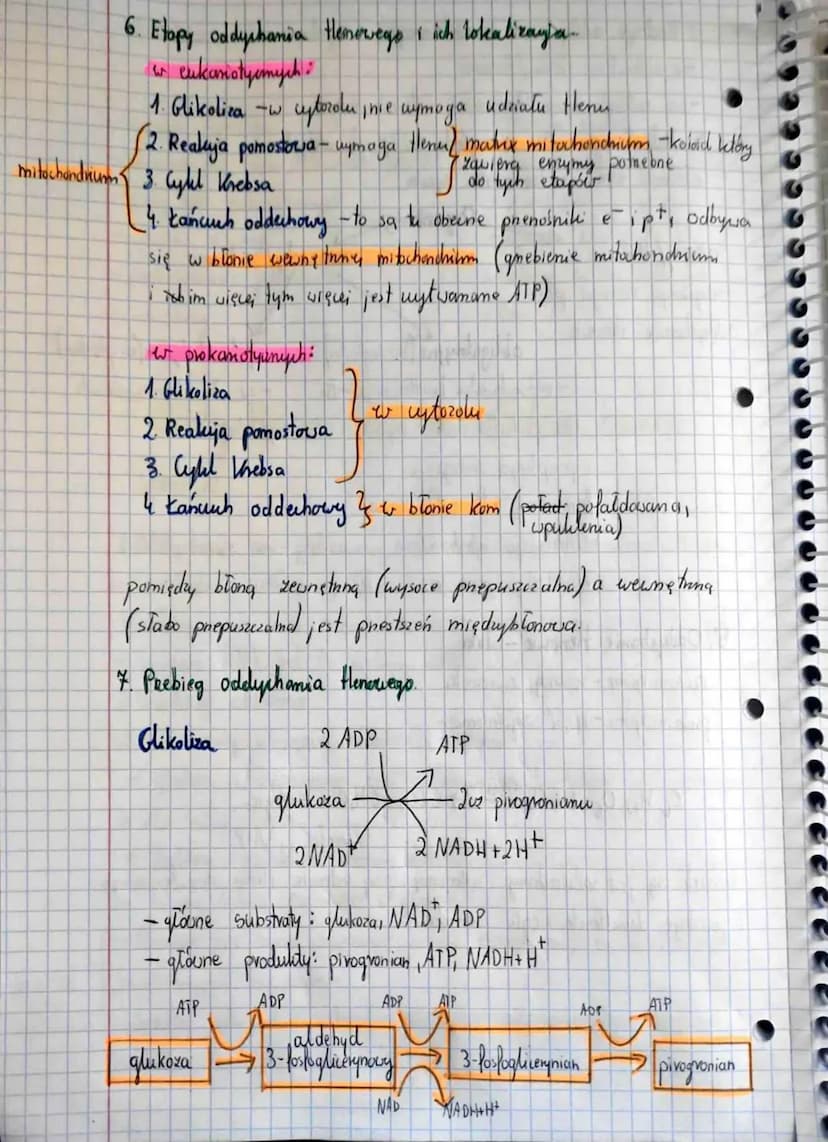 6. Etapy oddychania tlenowego i ich lokalizacja.
w eukariotycznych:
1. Glikoliza - w cytozolu, nie wymaga udziału tlenu
2. Reakcja pomostowa - wymaga tlenu matrix mitochondrium - koloid który
zawiera enzymy potrzebne
mitochondrium
3. Cykl Krebsa do tych etapów
4. Łańcuch oddechowy - to są tu obecne przenośniki e⁻ i p⁺, odbywa
się w błonie wewnętrznej mitochondrium (grzebienie mitochondrium
i ich im więcej tym więcej jest wytwarzane ATP)
w prokariotycznych:
1. Glikoliza
w cytozolu
2. Reakcja pomostowa
3. Cykl Krebsa
4 Łańcuch oddechowy w błonie kom (pofad, pofałdowana,
wpuklenia)
pomiędzy błoną zewnętrzną (wysoce przepuszczalna) a wewnętrzną
(słabo przepuszczalna) jest przestrzeń międzybłonowa.
7. Przebieg oddychania tlenowego.
Glikoliza 2 ADP ATP
glukoza 2cz pirogronianu
2NAD⁺ 2 NADH+2H⁺
- główne substraty: glukoza, NAD⁺, ADP
- główne produkty: pirogronian, ATP, NADH+H⁺
ATP ADP ADP ATP ADP ATP
aldehyd
glukoza 3-fosfoglicerynowy 3-fosfoglicerynian pirogronian
NAD NADH+H⁺